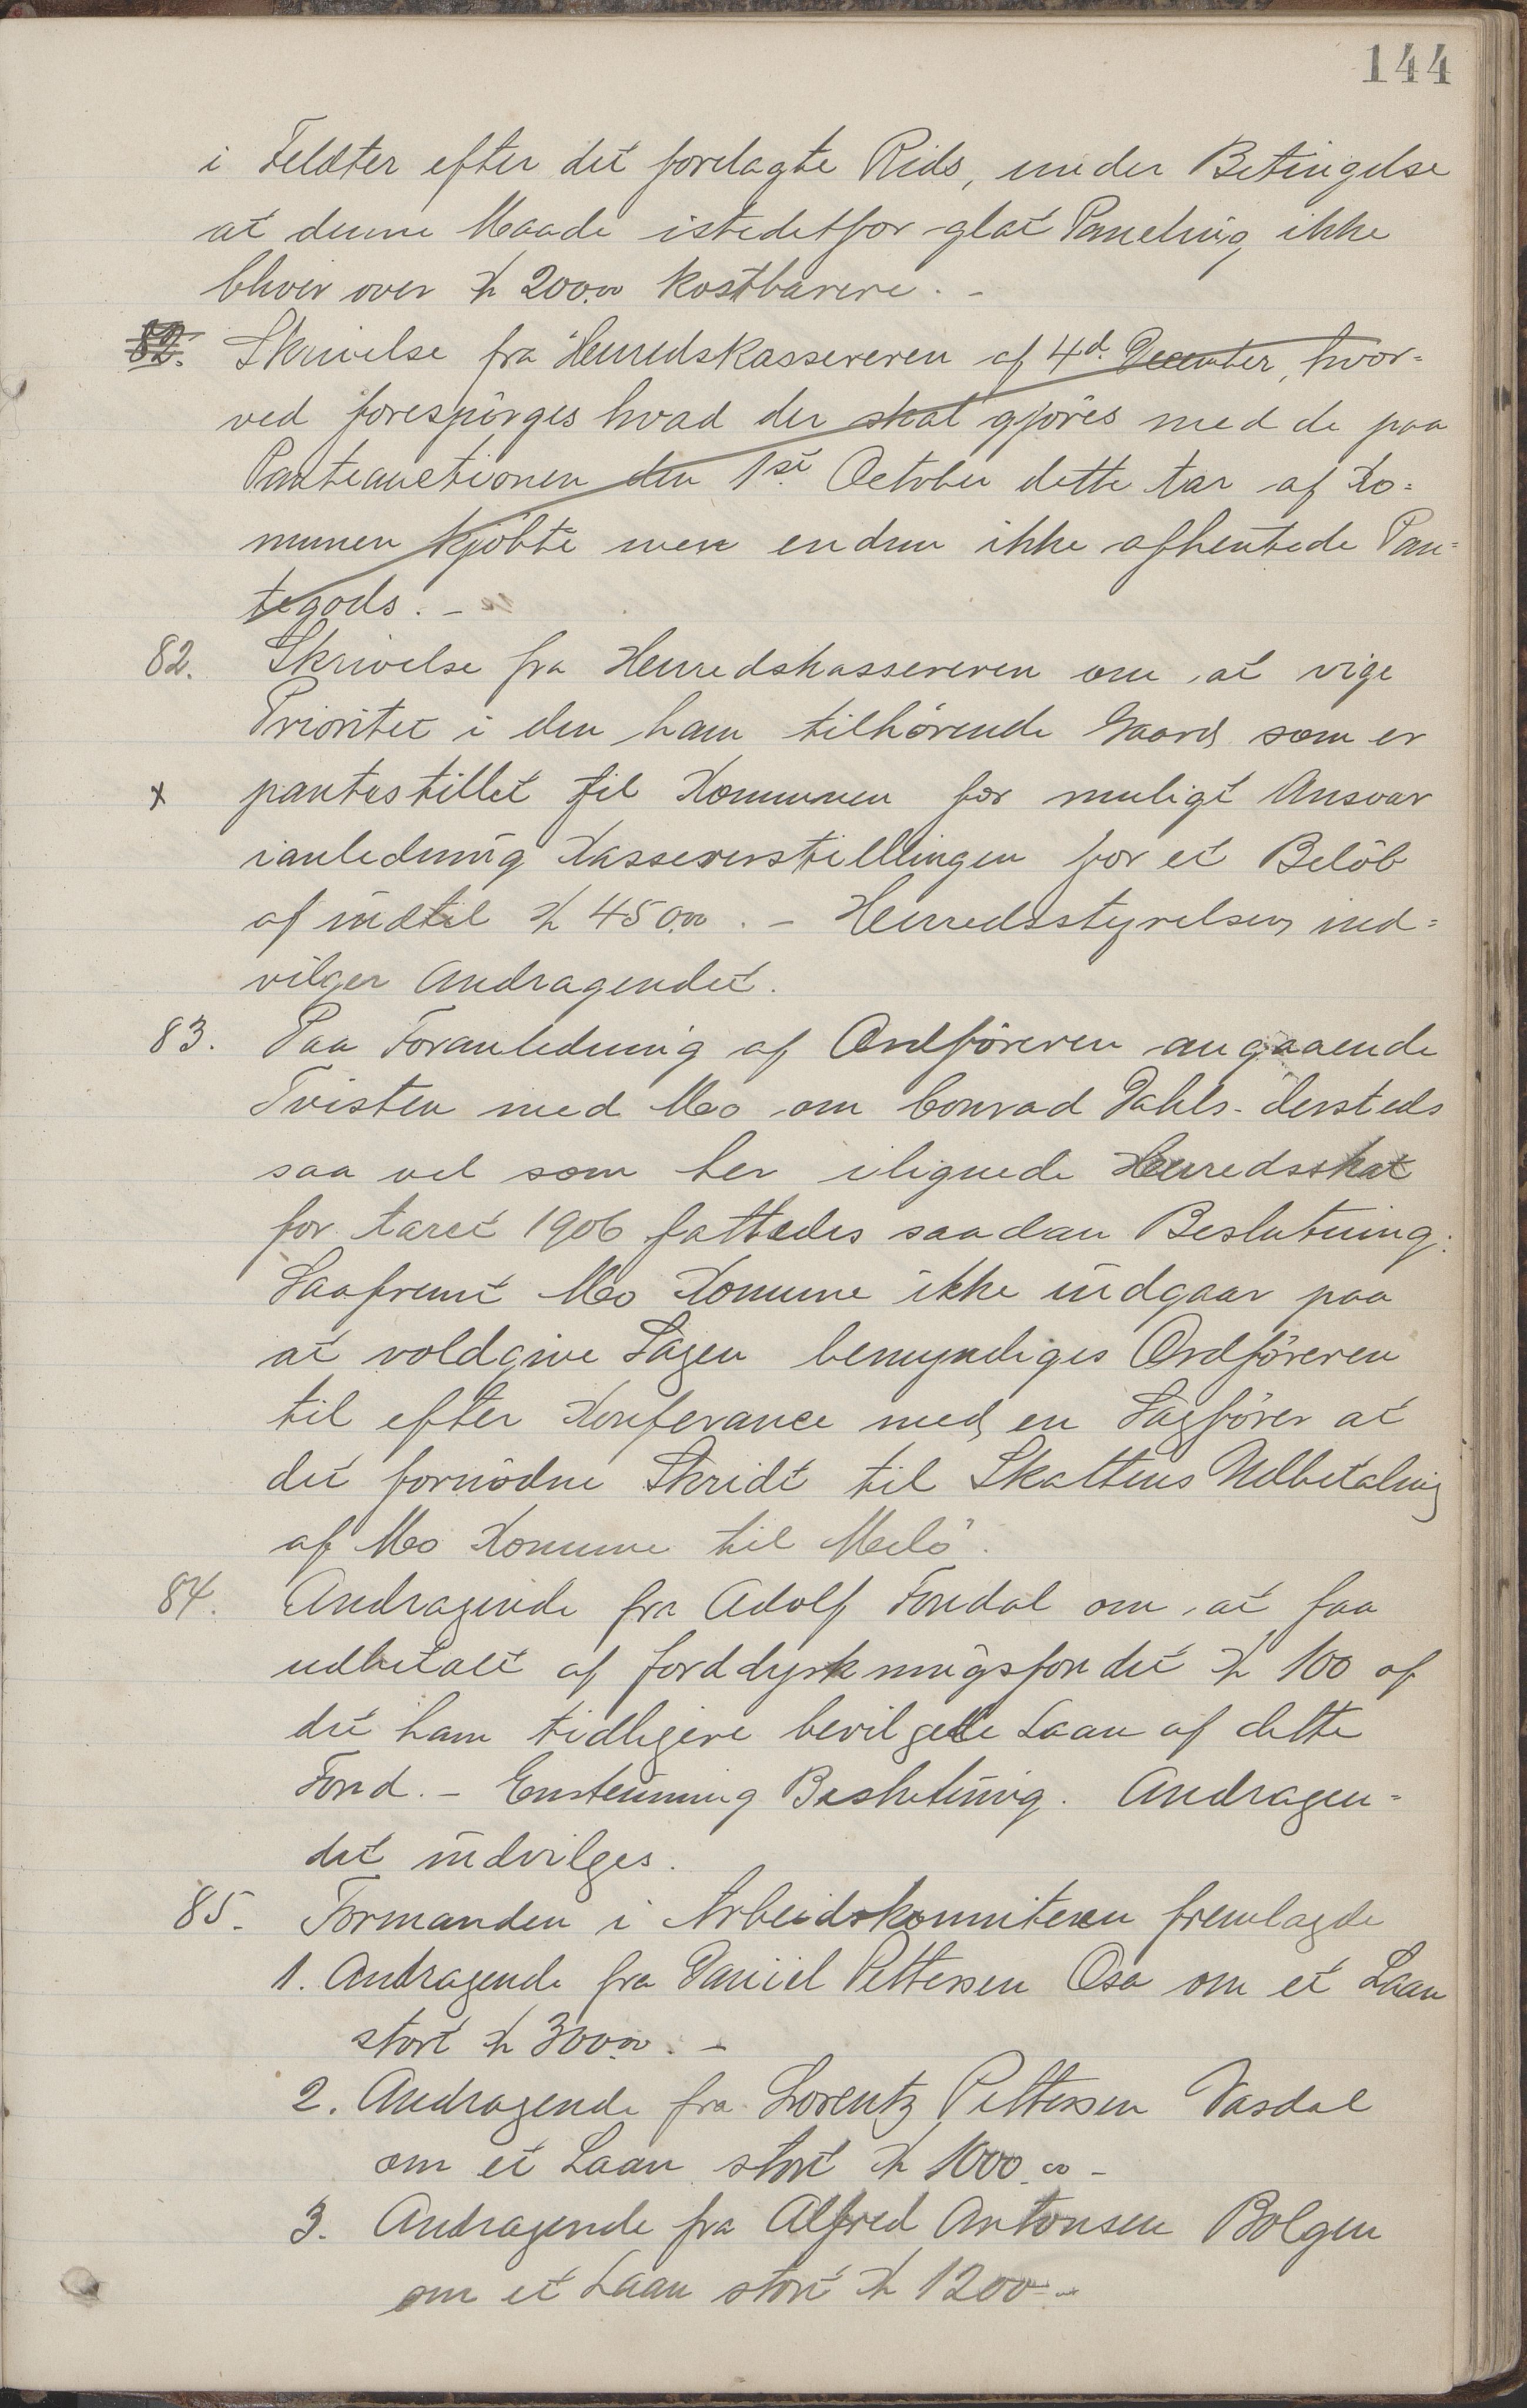 144
i Feldter efter det forelagte Rids, under Betingelse
at denne Maade istedetfor glat Paneling ikke
bliver over Kr 200.00 kostbarere. -
82. Skrivelse fra Herredskassereren af 4d. December, hvor=
ved forespörges hvad der skal gjöres med de paa
Panteauctionen den 1st October dette Aar af Ko=
munen kjöbte men endnu ikke afhentede Pan=
tegods. -
82. Skrivelse fra Herredskassereren om at vige
Prioritet i den ham tilhörende Gaard som er
x pantestillet til Kommunen for muligt Ansvar
ianledning Kassererstillingen for et Belöb
af indtil Kr 450.00. - Herredsstyrelsen ind=
vilger Andragendet.
83. Paa Foranledning af Ordföreren angaaende
Tvisten med Mo om Conrad Dahls dersteds
saa vel som her ilignede Herredsskat
for Aaret 1906 fattedes saadan Beslutning:
Saafremt Mo Komune ikke indgaar paa
at voldgive Sagen bemyndiges Ordföreren
til efter Konferance med en Sagförer at
det fornödne Skridt til Skattens Udbetaling
af Mo Komune til Melö.
84. Andragende fra Adolf Fondal om at faa
udbetalt af Jorddyrkningsfondet Kr 100 af
det ham tidligere bevilgede Laan af dette
Fond. - Enstemmig Beslutning. Andragen=
det indvilges.
85. Formanden i Arbeidskomiteen fremlagde
1. Andragende fra Daniel Pettersen Osa om et Laan
stort Kr 300.00. -
2. Andragende fra Lorentz Pettersen Vasdal
om et Laan stort Kr 1000.00 -
3. Andragende fra Alfred Antonsen Bolgen
om et Laan stort Kr 1200 -